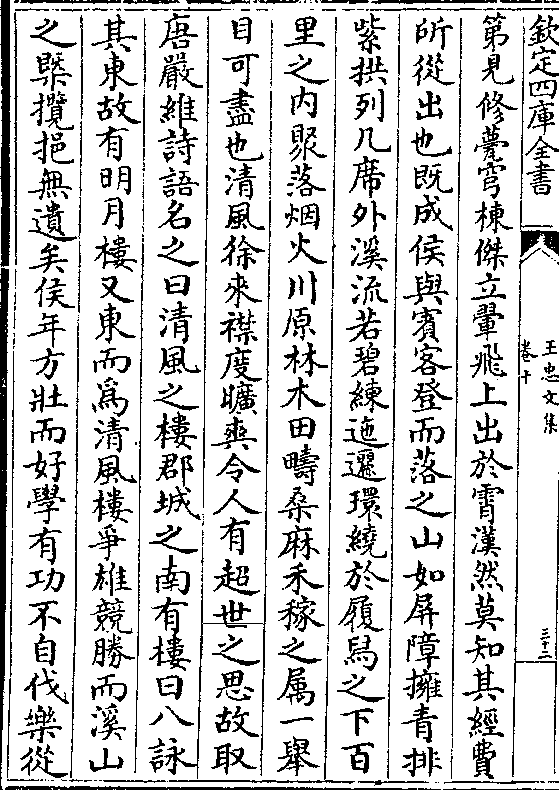 欽定四庫全書
王忠文集
卷十
三十二
第見修甍穹棟傑立翬飛上出於霄漢然莫知其經費
所從出也既成侯與賓客登而落之山如屏障擁青排
紫拱列几席外溪流若碧練迤邐環繞於履舄之下百
里之內聚落烟火川原林木田疇桑麻禾稼之属一舉
目可盡也清風徐來襟度曠爽令人有超世之思故取
唐嚴維詩語名之曰清風之樓郡城之南有樓曰八詠
其東故有明月樓又東而為清風樓爭雄競勝而溪山
之槩攬挹無遺矣侯年方壯而好學有功不自伐樂從